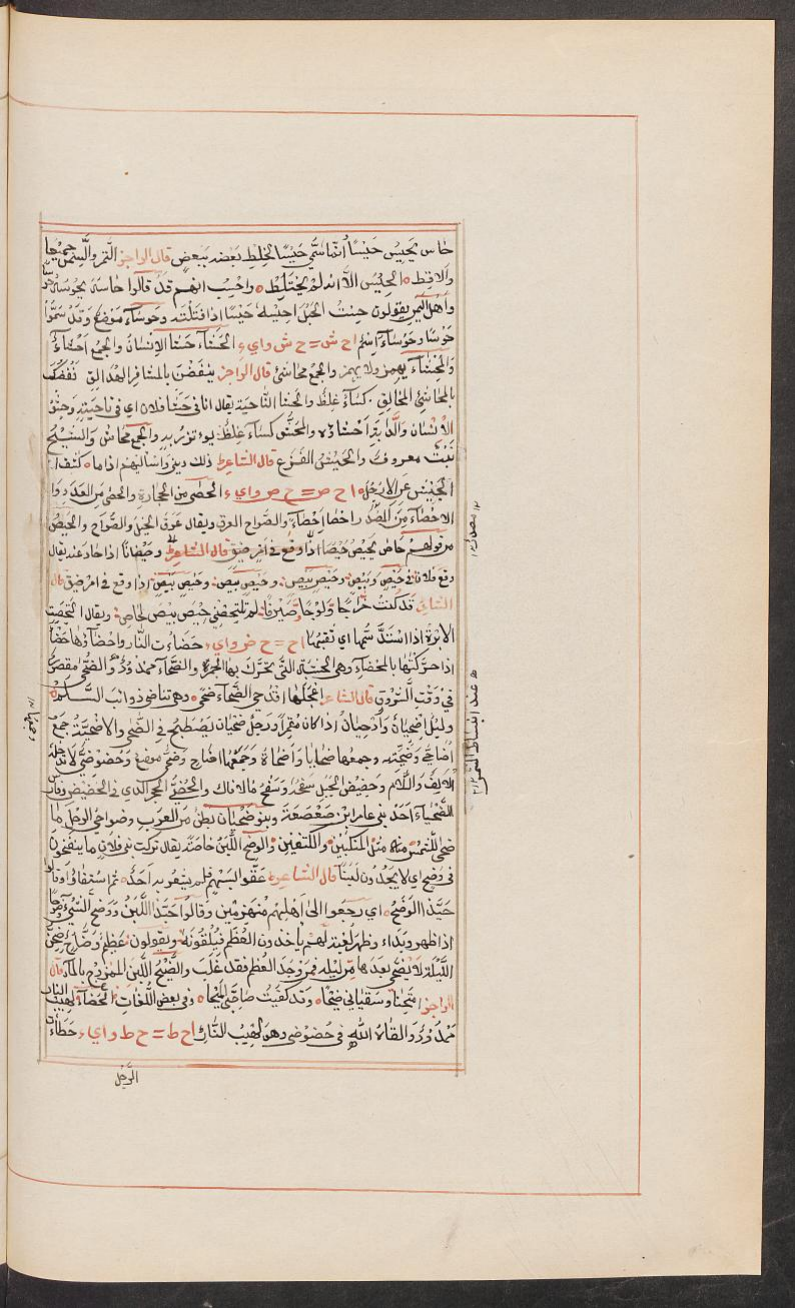 حاس يحيس حيسًا انما سمي حيسًا لخلط بعضه ببعض قال الراجز التمر والسمن جميعا
والاقط الحيس الا انه لم يختلط واحسب انهم قد قالوا حاسه يحوسه
واهل اليمن يقولون حست الحبل احيسه حيسًا اذا فتلته وحوساء موضع وقد سمّوا
حوسا وحوساء اسم ا ح ش = ح ش و ا ي ء الحشاء حشا الانسان والجمع احشاء
والمحشاء يهمز ولا يهمز والجمع محاشئ قال الراجز ينفضن بالمشافر الهدالق نفضك
بالمحاشئ المحالق كساء غليظ والحشا الناحية يقال انا في حشا فلان اي في ناحيته وحشو
الانسان والدابة احشاؤه والمحشى كساء غليظ يوتزر به والجمع محاش والشيح
نبت معروف والجيش الفزع قال الشاعر ذلك ديني واسأليهم اذا ما كشف
الجيش عن الارجل ا ح ص = ح ص و ا ي ء الحصى من الحجارة والحصى من العدد وا
الاحصاء من الصد را حصا احصاء والصواح العرق ويقال عرق الخيل والصواح والحيص
من قولهم حاص يحيص حيصا اذا وقع في امر ضيق قال الشاعر وحيصانًا اذا حاد عنه يقال
وقع فلان في حيص وبيص وحيص بيص وحيص بيص وحيص بيص اذا وقع في امر ضيق قال
الشاعر قد كنت خرّاجا ولوجا صيرفا لم تلتحصني حيص بيص لحاص ويقال التحصت
الابرة اذا استد سمها اي ثقبها ا ح = ح ض و ا ي حضاءت النار واحضأتها حضأ
اذا حرّكتها بالمحضاء وهي الخشبة التي يحرك بها الجمر والضحاء ممدود والضحى مقصور
في وقت الشروق قال الشاعر اعجلها اقدحي الضحاء ضحى وهي تناصي ذوائب السلم
وليل اضحيان واضحيان اذا كان مقمرا ورجل ضحيان يصطبح في الضحى والاضحية جمع
اضاحي وضحيّة وجمعها ضحايا واضحاة وجمعها اضاح وضحى موضع وحضوضى لا تدخله
الالف واللام وحضيض الجبل سفحه وسفح مالاناك والحضّي الحجر الذي في الحضيض وفارس
الضحياء احد بني عامر ابن صعصعة وبنو ضحيان بطن من العرب وضواحي الرجل ما
ضحى للشمس منه مثل المنكبين والكتفين والوضح اللبن خاصة يقال تركت بني فلان ما ينفخون
في وضح اي لا يجدون لبنًا قال الشاعر عقّوا بسهم فلم يشعر به احد ثم استفاؤا وقالوا
حبّذا الوضح اي رجعوا الى اهليهم منهزمين وقالوا حبّذا اللبن ووضح الشيء وضوحًا
اذا ظهر وبداء وظهر لغة لهم ياخذون العظم فيلقونه ويقولون عظم وضّاح ضحى
الليلة لا يضحي بعدها من ليله فمن وجد العظم فقد غلب والضيح اللبن الممزوج بالماء قال
الراجز امتحضا وسقياني ضيحًا وقد كفيت صاحبيّ الميحا وفي بعض اللغات الحضاء لهيب النار
ممدود والقاه الله في حضوضى وهو لهيب النار ا ح ط = ح ط و ا ي ء حطاءت
عند انبساط الشمس
الرجل